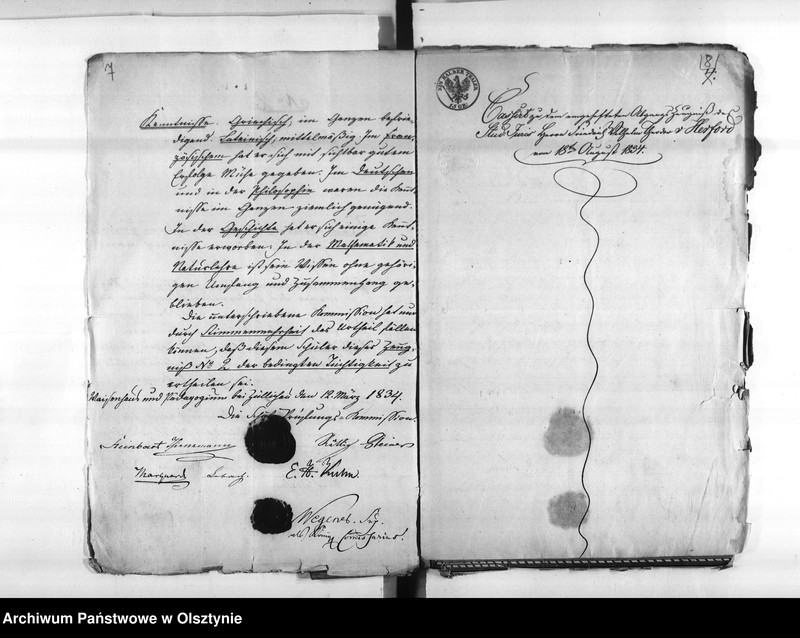 7
Kenntnisse. Griechisch, im Ganzen befrie-
digend. Lateinisch, mittelmäßig. Im Fran-
zösischen hat er sich mit sichtbar gutem
Erfolge Mühe gegeben. Im Deutschen
und in der Philosophie waren die Kennt-
nisse im Ganzen ziemlich genügend.
In der Geschichte hat er sich einige Kennt-
nisse erworben. In der Mathematik und
Naturlehre ist sein Wissen ohne gehöri-
gen Umfang und Zusammenhang ge-
blieben.
Die unterschriebene Kommission hat nun
durch Stimmenmehrheit das Urtheil fällen
können, daß diesem Schüler dieses Zeug-
niß No 2 der bedingten Tüchtigkeit zu
ertheilen sei.
Waisenhaus und Pädagogium bei Züllichau den 12. März 1834.
Die Prüfungs-Kommission.
Steinbart
Steiner
Marquard
E.
Wegener
als
18
4.
EIN HALBER THALER
15 SGR.
zu dem Abgangs Zeugniß des
Stud. Juris Herrn Friedrich Wilhelm v Herford
vom 18ten August 1834.
Archiwum Państwowe w Olsztynie